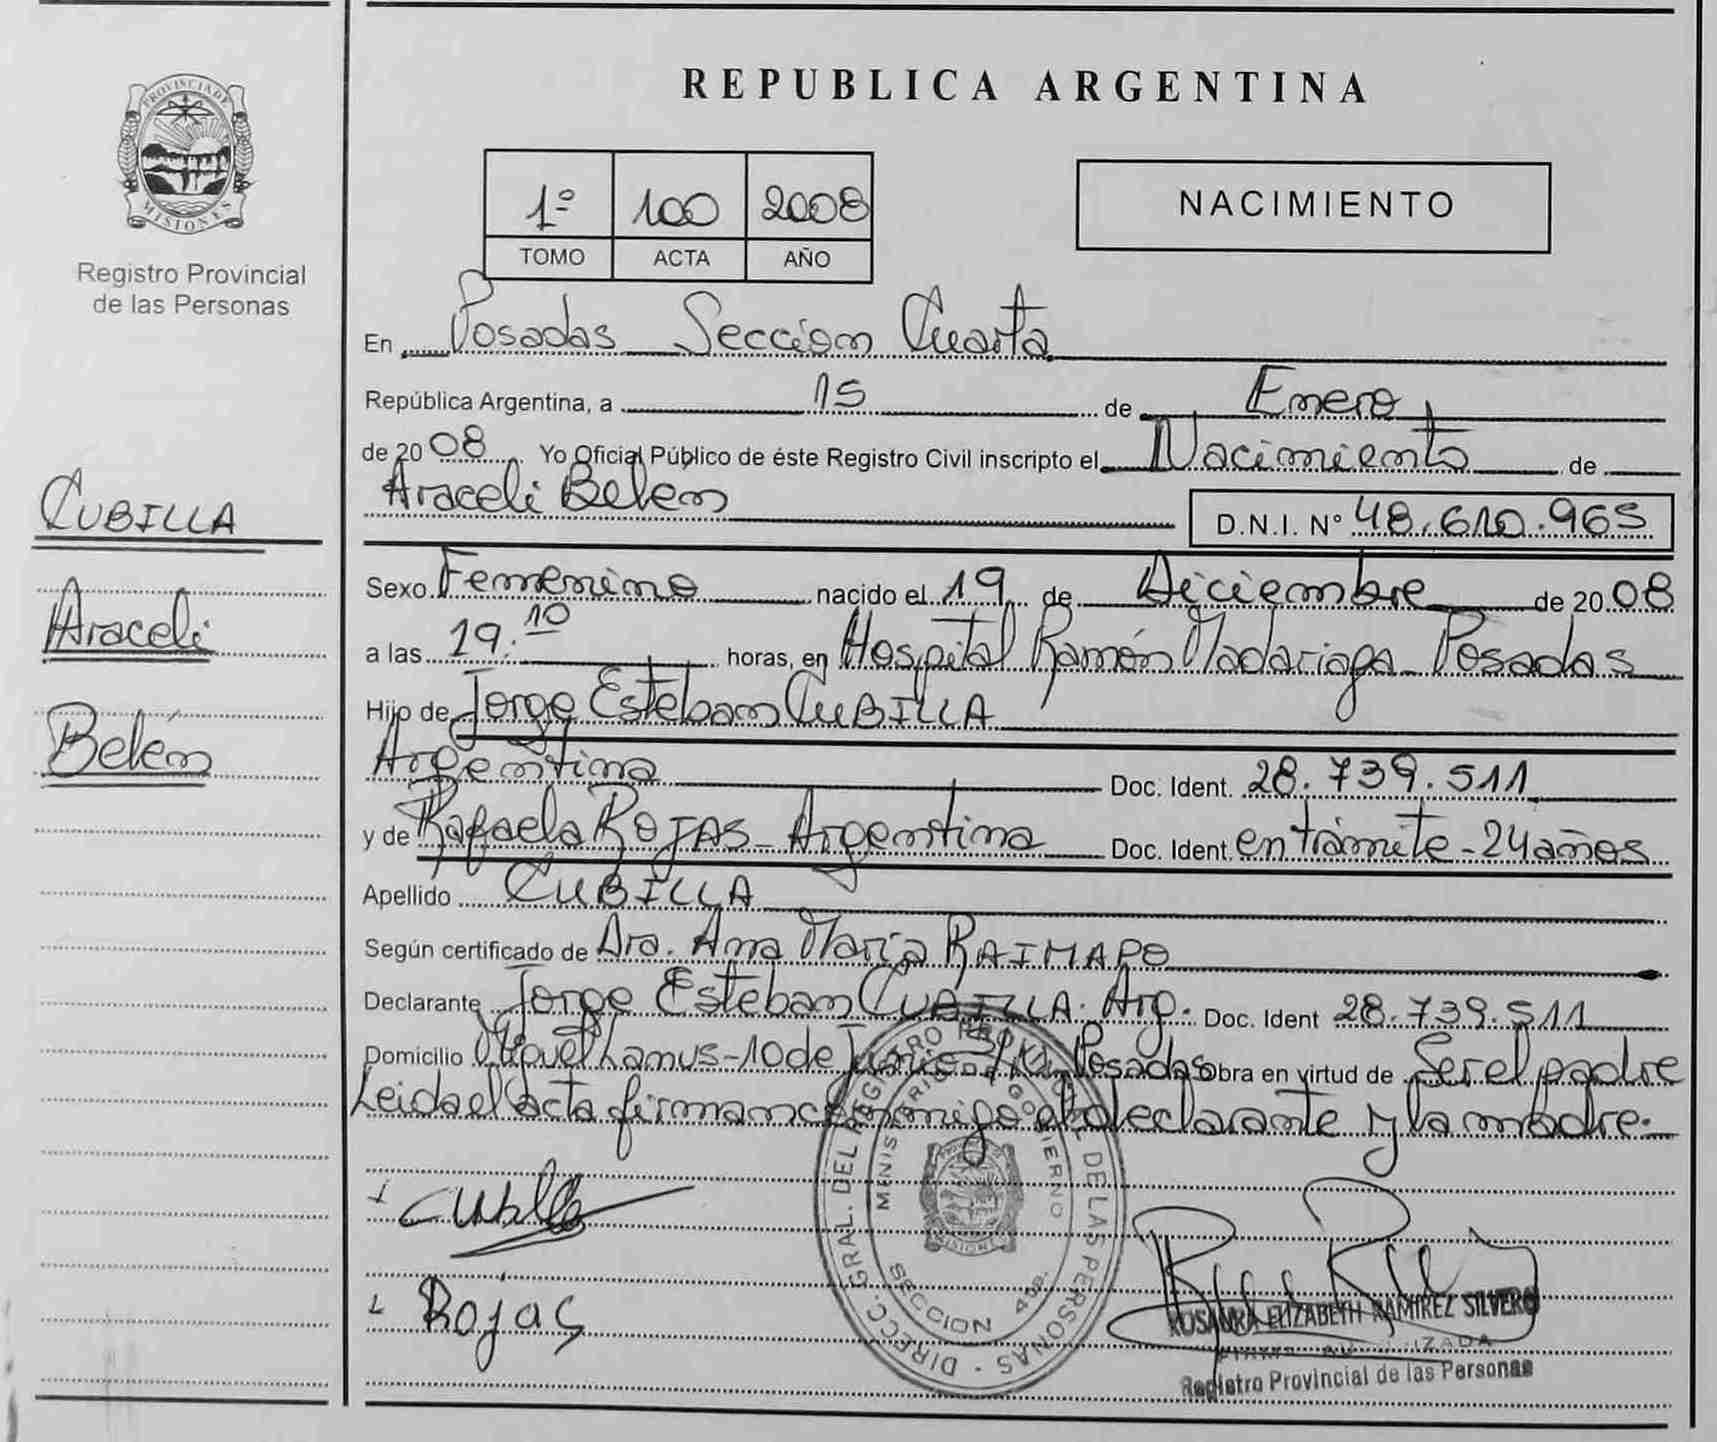 PROVINCIA DE
MISIONES
Registro Provincial
de las Personas
CUBILLA
Araceli
Belén
REPUBLICA ARGENTINA
1º 100 2008
TOMO ACTA AÑO
NACIMIENTO
En Posadas Sección Cuarta
República Argentina, a 15 de Enero
de 2008 Yo Oficial Público de éste Registro Civil inscripto el Nacimiento de
Araceli Belem
D.N.I. Nº 48.610.965
Sexo Femenino nacido el 19 de Diciembre de 2008
a las 19:10 horas, en Hospital Ramón Madariaga - Posadas
Hijo de Jorge Esteban CUBILLA
Argentina Doc. Ident. 28.739.511
y de Rafaela ROJAS - Argentina Doc. Ident. en trámite - 24 años
Apellido CUBILLA
Según certificado de Dra. Ana María
Declarante Jorge Esteban CUBILLA. Arg. Doc. Ident 28.739.511
Domicilio Miguel Lanus - 10 de Junio - Posadas Obra en virtud de Ser el padre
Leida el acta firman conmigo el declarante y la madre.-
Cubilla
Rojas
DIRECC. GRAL. DEL REGISTRO PROVINCIAL DE LAS PERSONAS
MINISTERIO GOBIERNO
MISIONES
SECCION 4ta.
ROSAURA ELIZABETH RAMIREZ SILVERO
FIRMA AUTORIZADA
Registro Provincial de las Personas